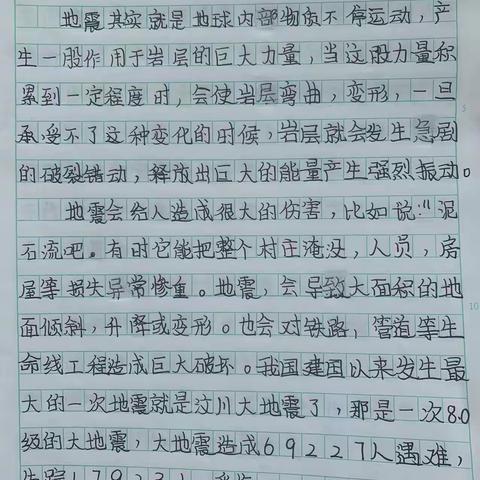 地震其实就是地球内部物质不停运动，产
生一股作用于岩层的巨大力量，当这股力量积
累到一定程度时，会使岩层弯曲，变形，一旦
承受不了这种变化的时候，岩层就会发生急剧
的破裂错动，释放出巨大的能量产生强烈振动。
地震会给人造成很大的伤害，比如说："泥
石流吧。有时它能把整个村庄淹没，人员，房
屋等损失异常惨重。地震，会导致大面积的地
面倾斜，升降或变形。也会对铁路，管道等生
命线工程造成巨大破坏。我国建国以来发生最
大的一次地震就是汶川大地震了，那是一次8.0
级的大地震，大地震造成69227人遇难，
失踪17923人